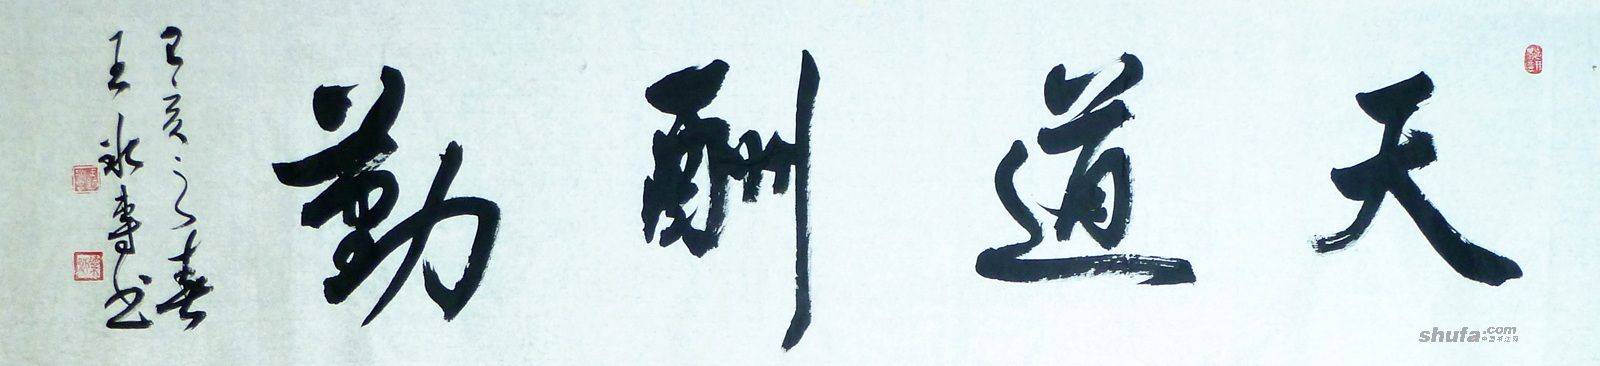 天道酬勤
己亥之春
王永専书
shufa.com